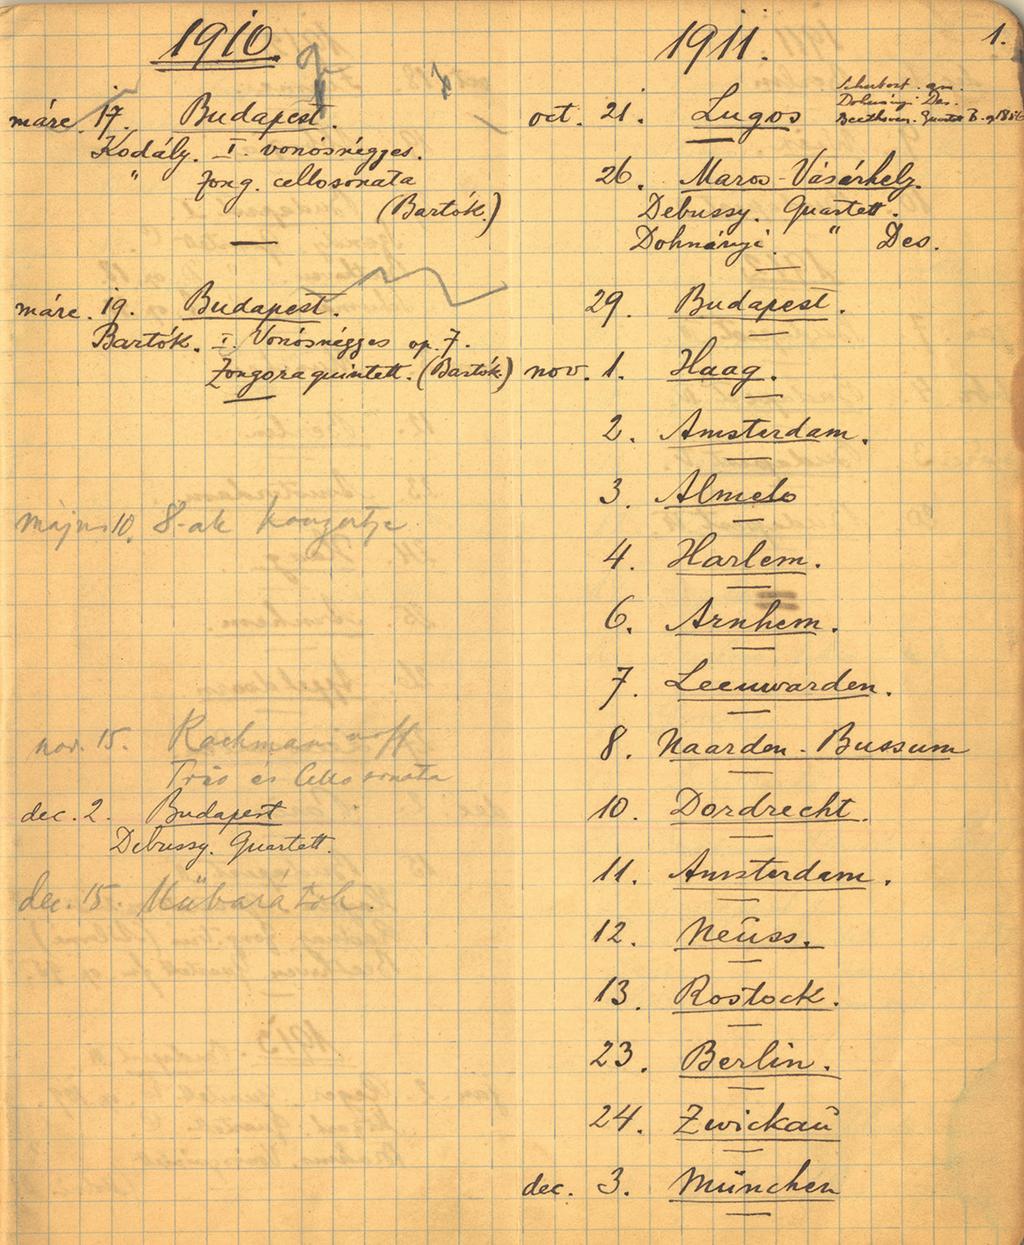 1910.
márc. 17. Budapest.
Kodály. I. vonósnégyes.
" Zong. cellosonata
(Bartók.)
márc. 19. Budapest.
Bartók. I. Vonósnégyes op. 7.
Zongoraquintett. (Bartók.)
május 10. 8-ak konzertje
nov. 15. Rachmaninoff
Trio és Cello sonata
dec. 2. Budapest
Debussy. Quartett.
dec. 15. Műbarátok.
1911.
1.
oct. 21. Lugos
Schubert.
Dohnányi Des.
Beethoven. Quartett
26. Maros-Vásárhely.
Debussy. Quartett.
Dohnányi " Des.
29. Budapest.
nov. 1. Haag.
2. Amsterdam.
3. Almelo
4. Harlem.
6. Arnhem.
7. Leeuwarden.
8. Naarden-Bussum
10. Dordrecht.
11. Amsterdam.
12. Neüss.
13. Rostock.
23. Berlin.
24. Zwickaŭ
dec. 3. München